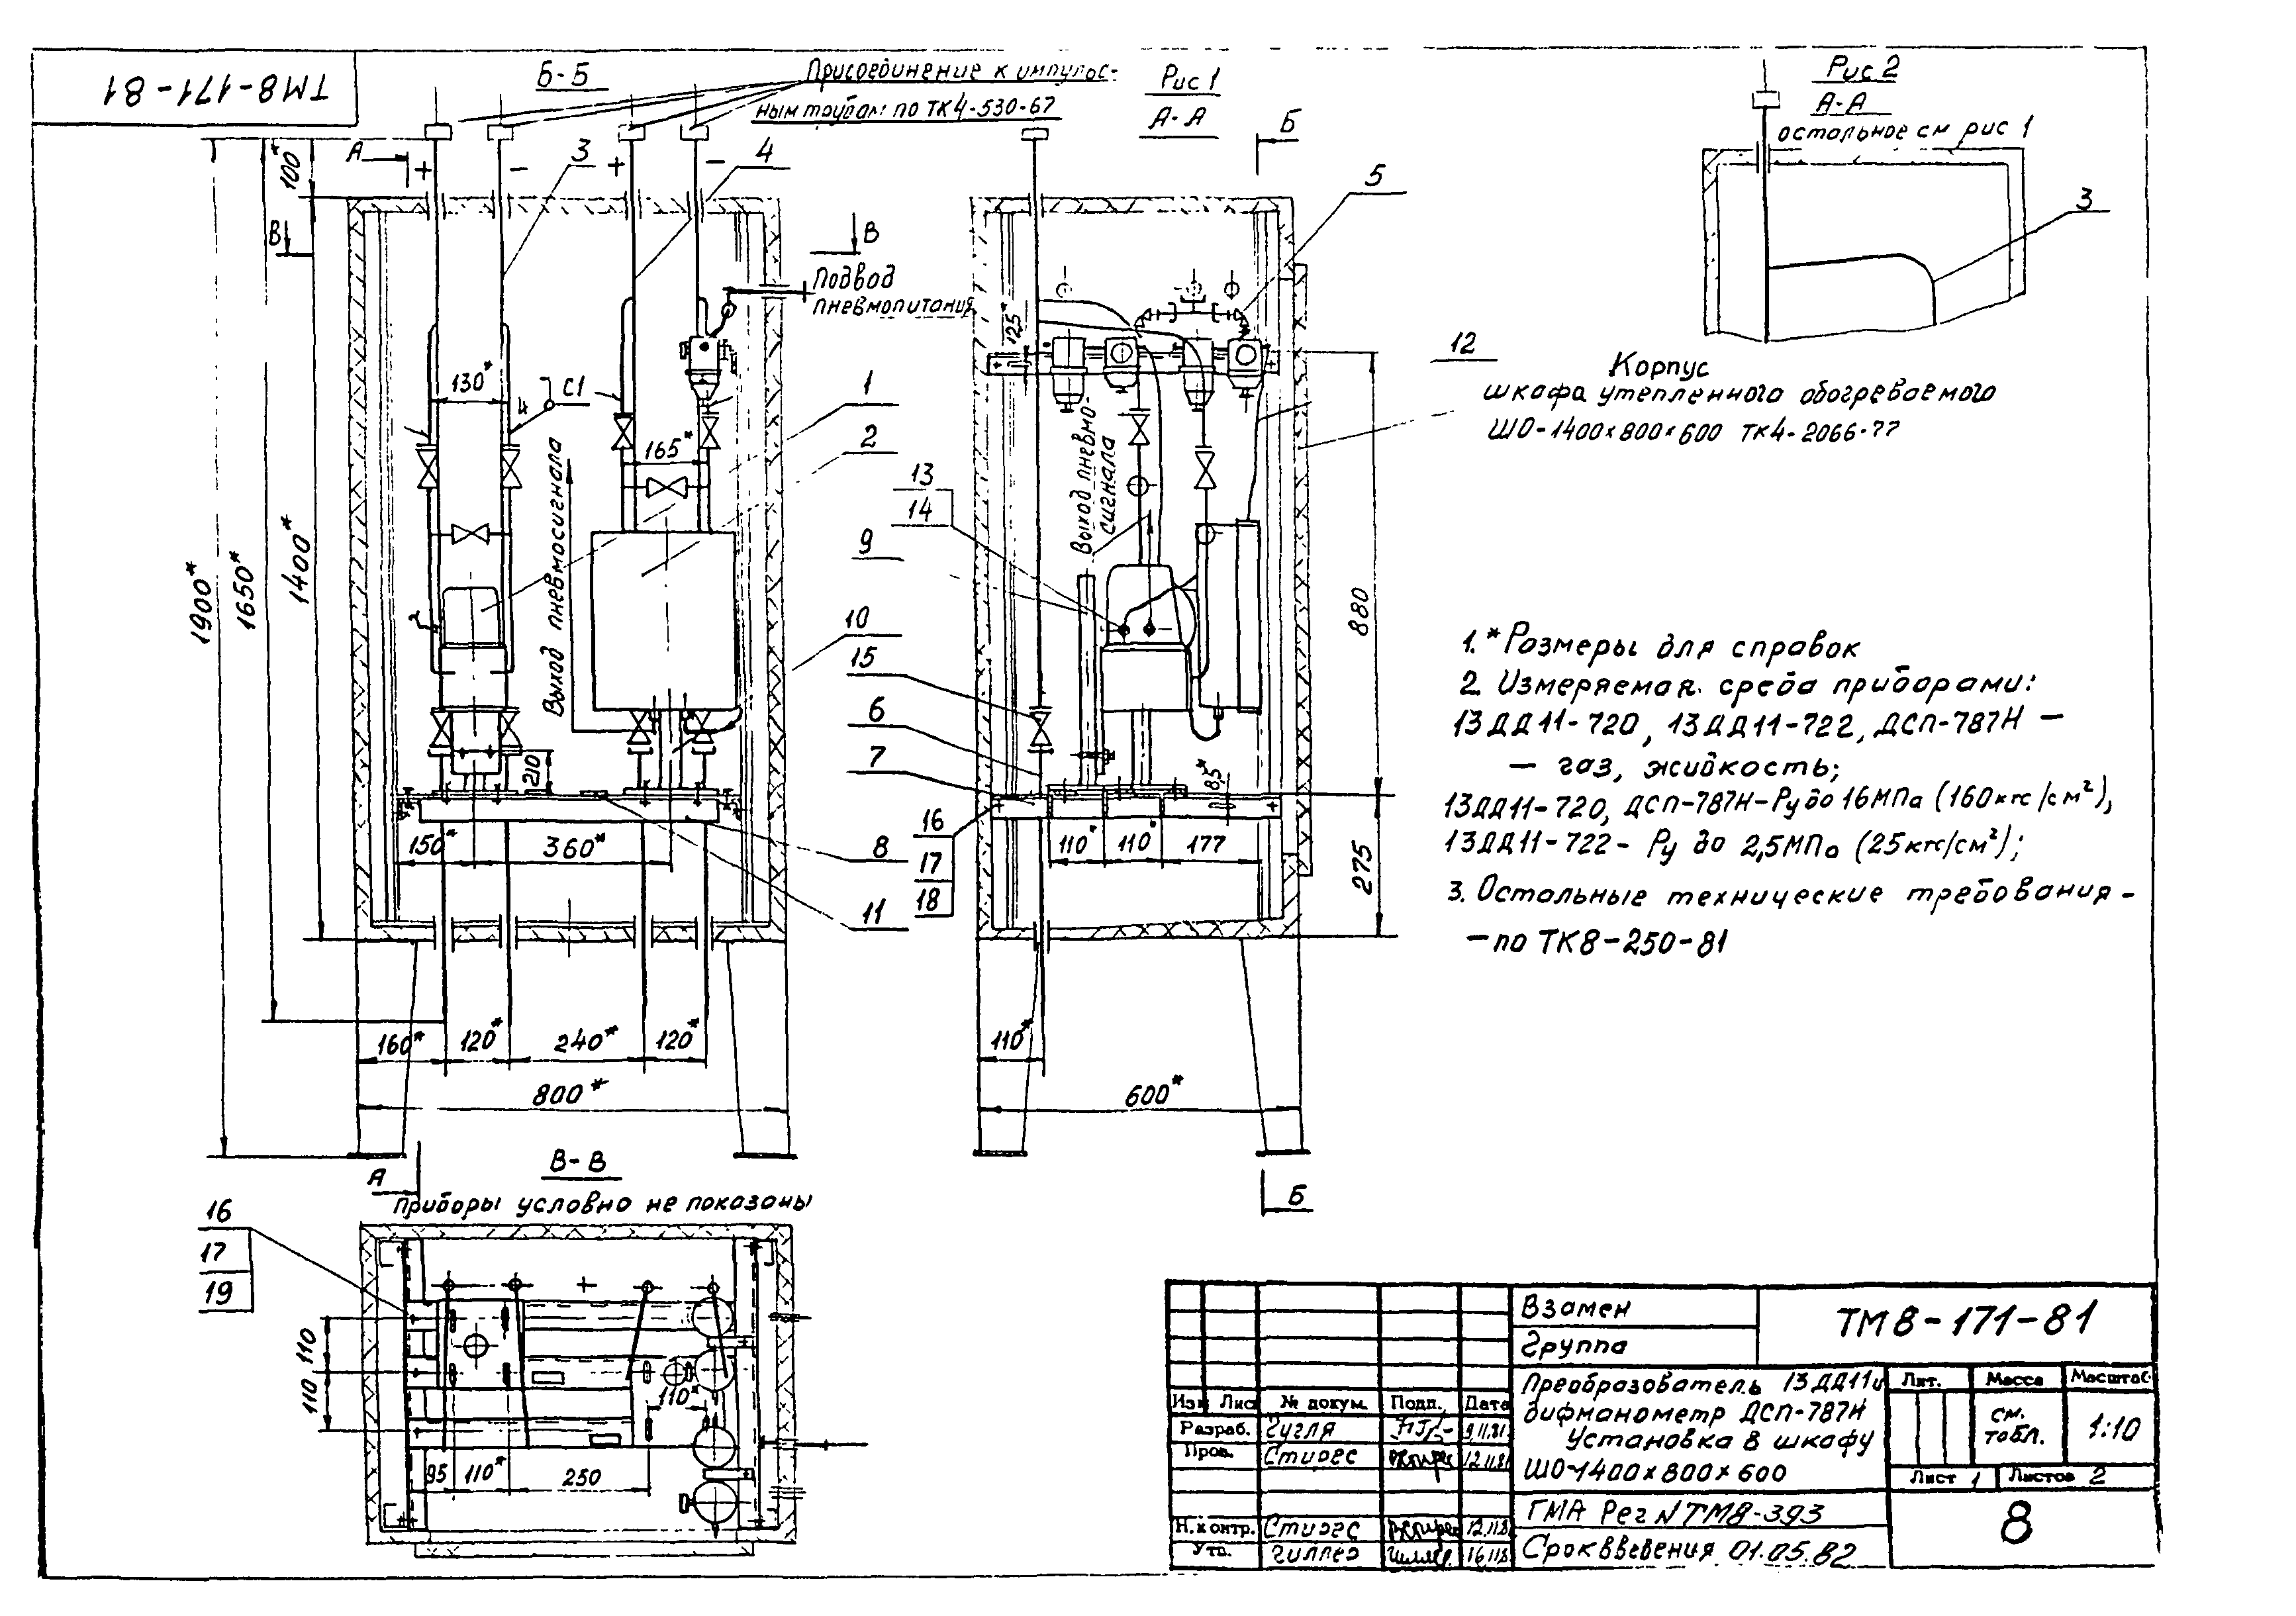 ТМ8-171-81
Б-Б
Присоединение к импульс-
ным трубам по ТК4-530-67
Рис 1
А-А
Б
Рис 2
А-А
остальное см рис 1
А
+
-
3
+
-
4
5
3
100*
В
В
Подвод
пневмопитания
125*
12
Корпус
шкафа утепленного обогреваемого
ШО-1400×800×600 ТК4-2066-77
130*
С1
4
165*
1
2
Выход пневмосигнала
Выход пневмо-
сигнала
13
14
9
10
15
6
7
8
11
16
17
18
1900*
1650*
1400*
210
150*
360*
85*
110*
110*
177
880
275
1. * Размеры для справок
2. Измеряемая среда приборами:
13ДД11-720, 13ДД11-722, ДСП-787Н —
— газ, жидкость;
13ДД11-720, ДСП-787Н-Ру до 16МПа (160кгс/см²),
13ДД11-722- Ру до 2,5МПа (25кгс/см²);
3. Остальные технические требования -
- по ТК8-250-81
160*
120*
240*
120*
800*
110*
600*
А
В-В
Приборы условно не показаны
Б
16
17
19
110
110
110*
95
110*
250
Взамен
Группа
ТМ8-171-81
Преобразователь 13ДД11 и
дифманометр ДСП-787Н
Установка в шкафу
ШО-1400×800×600
Лит.
Масса
Масштаб
см.
табл.
1:10
Лист 1
Листов 2
Изм Лис № докум. Подп. Дата
Разраб. Гугля 9.11.81
Пров. Стирес 12.11.81
Н.контр. Стирес 12.11.8
Утв. Гиллер 16.11.8
ГМА Рег N ТМ8-393
Срок введения 01.05.82
8